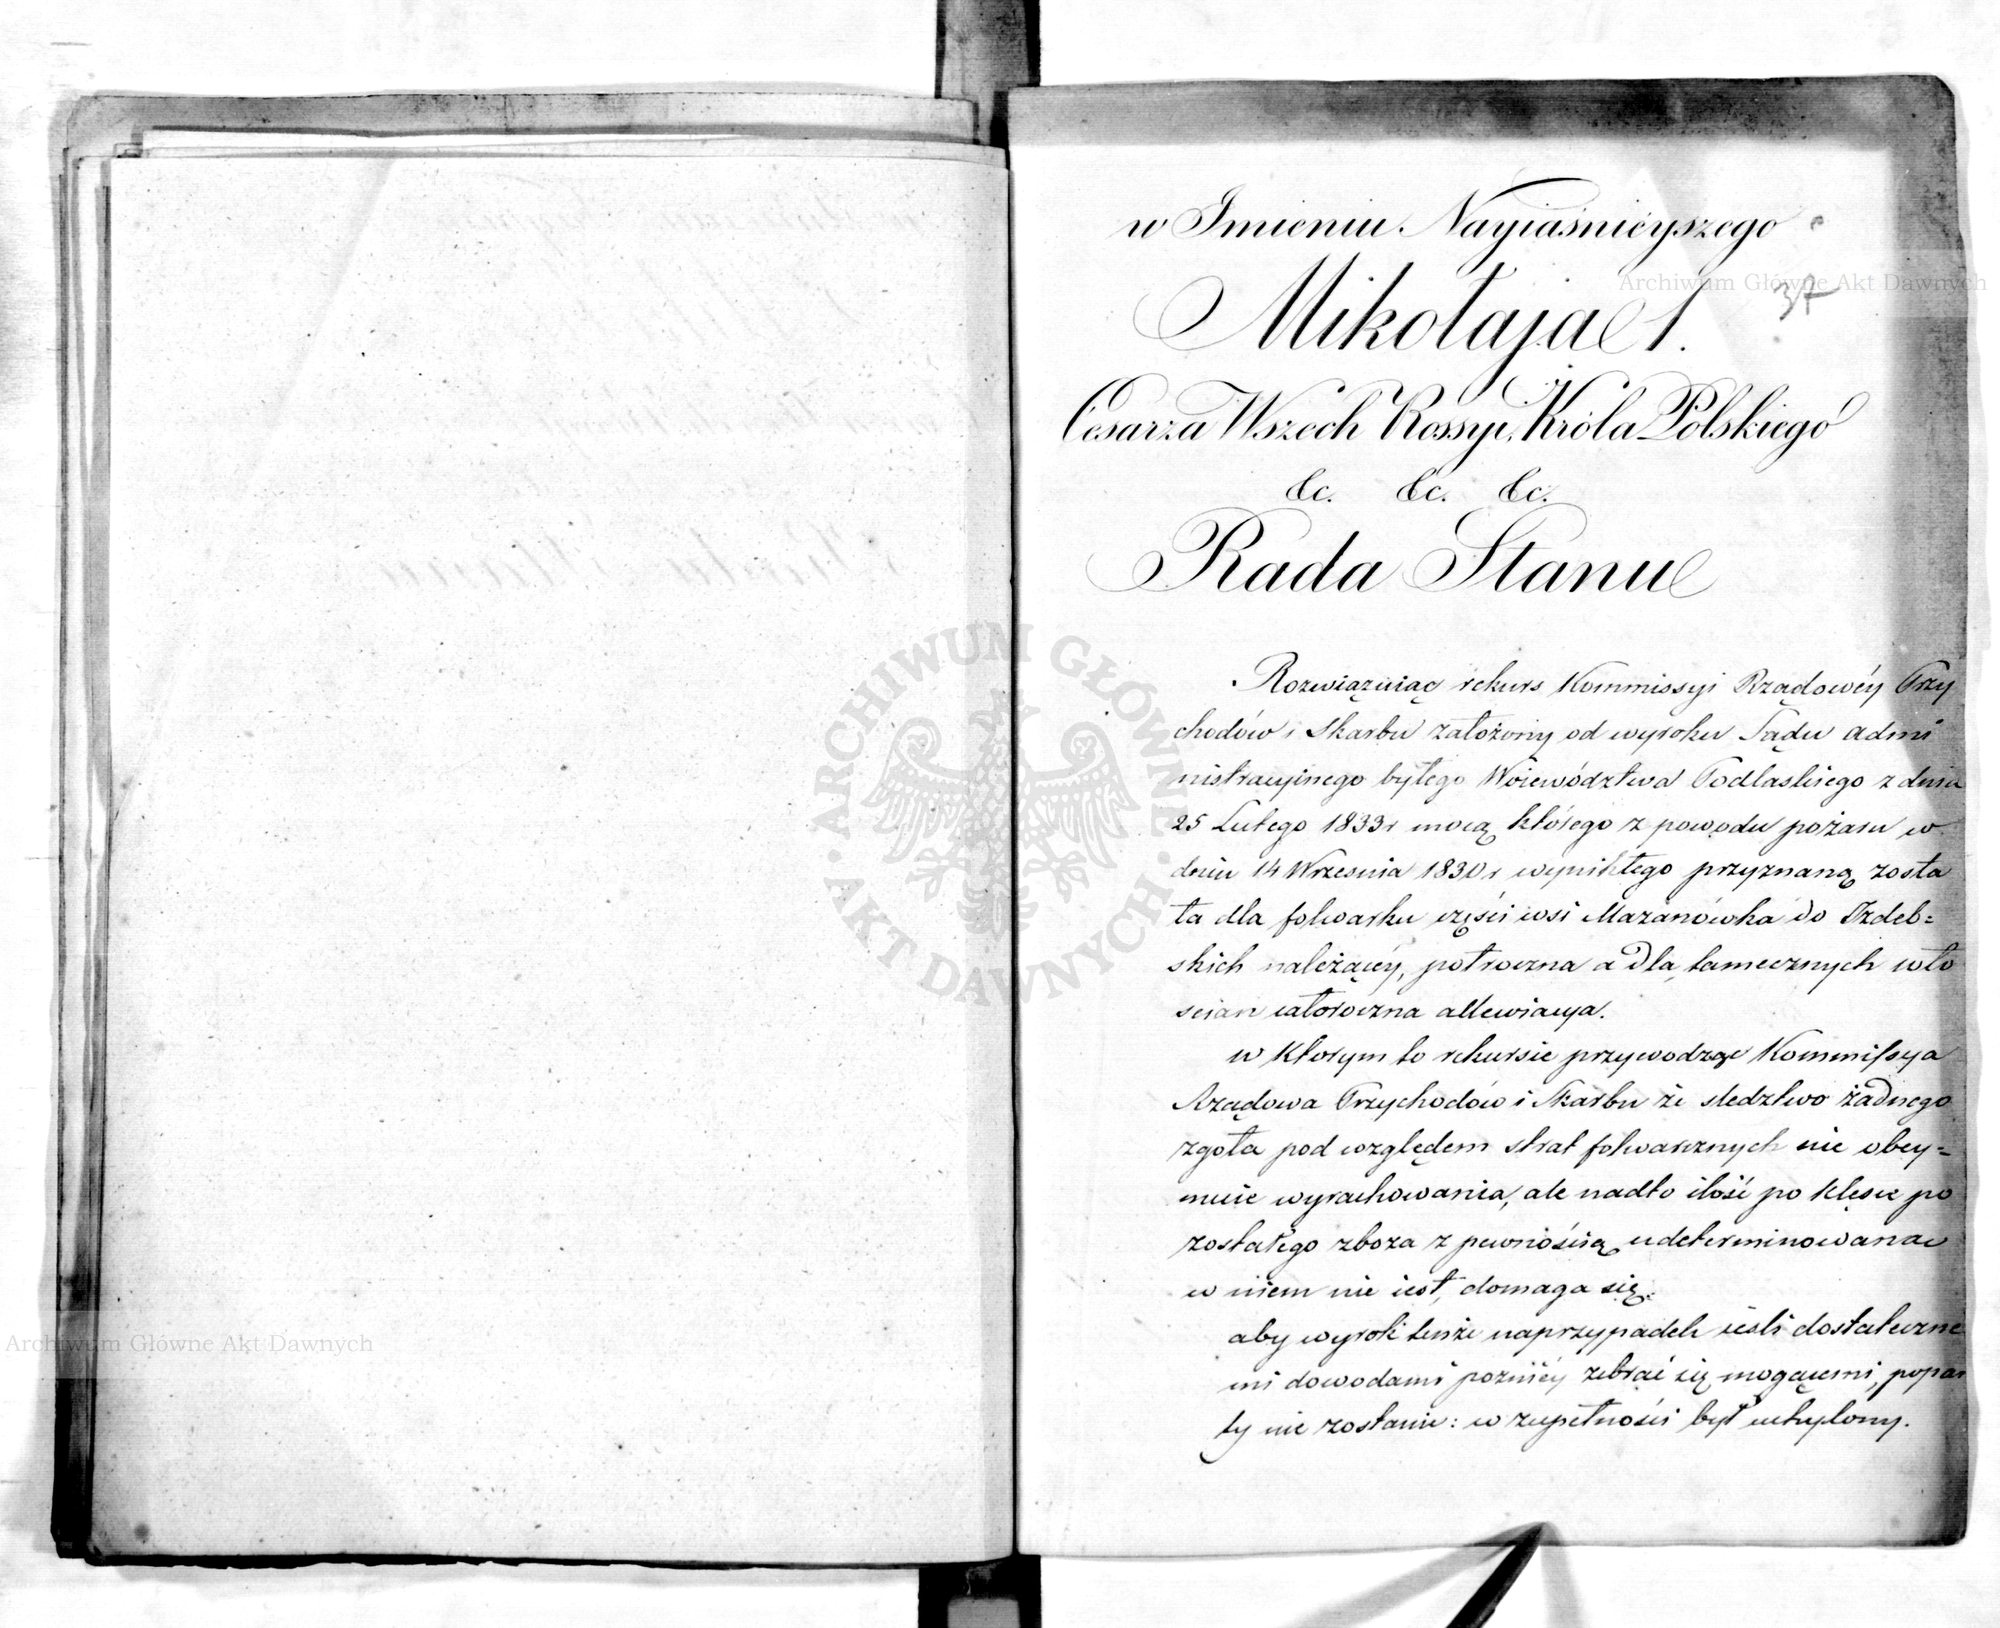 w Imieniu Nayiaśnieyszego
37
Mikołaja 1.
Cesarza Wszech Rossyi, Króla Polskiego
&c. &c. &c.
Rada Stanu
Rozwiązuiąc rekurs Kommissyi Rządowéy Przy
chodów i Skarbu założony od wyroku Sądu admi
nistracyinego byłego Woiewództwa Podlaskiego z dnia
25 Lutego 1833 r mocą którego z powodu pożaru w
dniu 14 Wrzesnia 1830 r wynikłego przyznaną zosta
ła dla folwarku części wsi Mazanówka do Izdeb=
skich należącéy, półroczna a dla tamecznych wło
scian całoroczna allewiacya.
w którym to rekursie przywodząc Kommissya
Rządowa Przychodów i Skarbu że sledztwo żadnego
zgoła pod względem strat folwarcznych nie obey=
muie wyrachowania, ale nadto ilość po klęsce po
zostałego zboża z pewnością udeterminowana
w niem nie iest, domaga się:
aby wyrok tenże naprzypadek ieśli dostateczne
mi dowodami pozniéy zebrać się mogącemi, popar
ty nie zostanie: w zupełności był uchylony.
ARCHIWUM GŁÓWNE AKT DAWNYCH
Archiwum Główne Akt Dawnych
Archiwum Główne Akt Dawnych